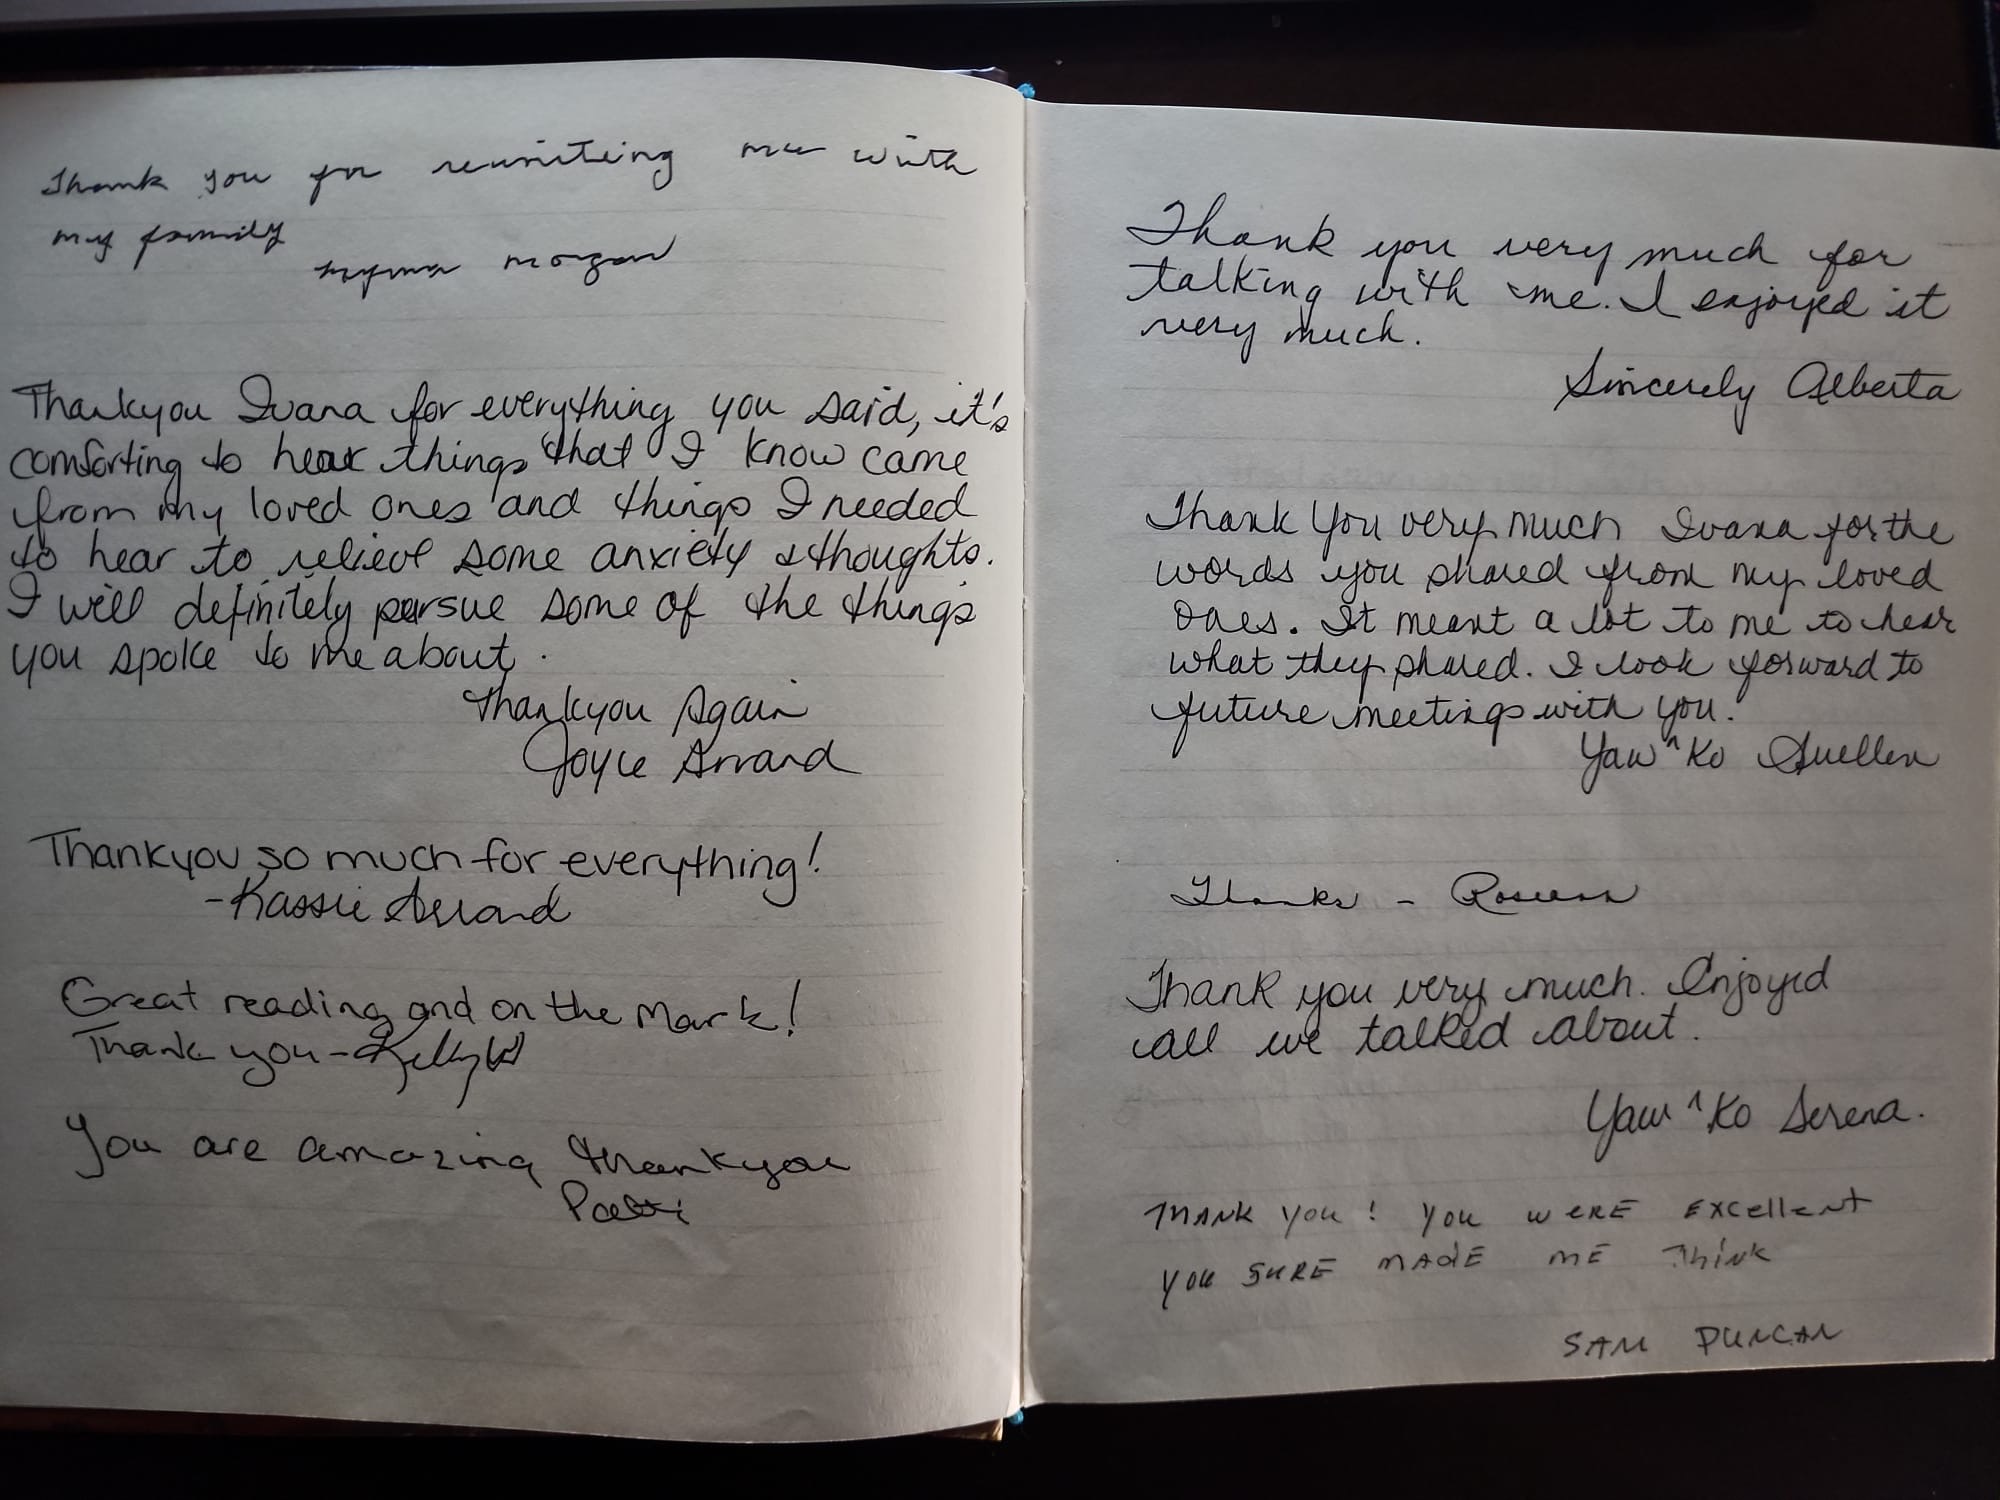 Thank you for reuniteing me with
my family
morgan
Thankyou Ivana for everything you said, it's
comforting to hear things that I know came
from my loved ones and things I needed
to hear to relieve some anxiety & thoughts.
I will definitely persue some of the things
you spoke to me about.
Thankyou Again
Joyce Arrand
Thankyou so much for everything!
-Kassie Arrand
Great reading and on the mark!
Thank you - Kelly W
You are amazing thankyou
Patti
Thank you very much for
talking with me. I enjoyed it
very much.
Sincerely Alberta
Thank You very much Ivana for the
words you shared from my loved
ones. It meant a lot to me to hear
what they shared. I look forward to
future meetings with you.
Yaw^Ko Suellen
Thanks -
Thank you very much. Enjoyed
all we talked about.
Yaw^Ko Serena.
THANK YOU! YOU WERE EXCellENT
YOU SURE MADE ME THINK
SAM DUNCAN